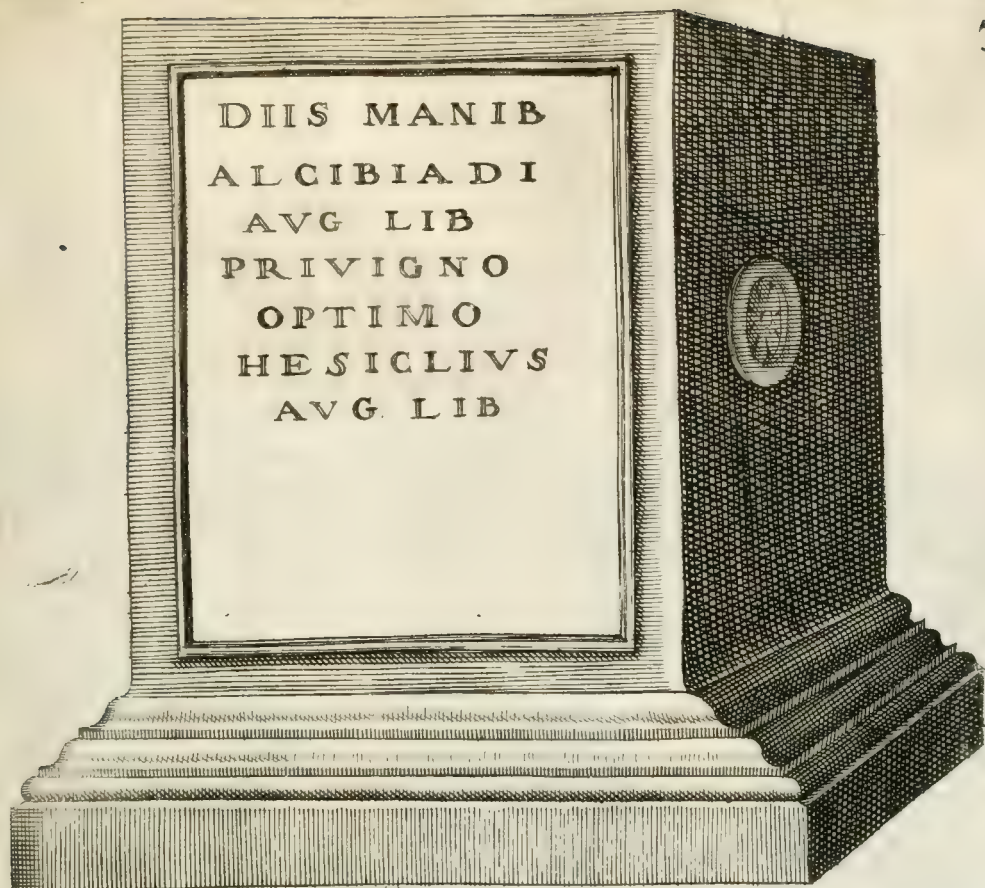 DIIS MANIB
ALCIBIADI
AVG LIB
PRIVIGNO
OPTIMO
HESICLIVS
AVG. LIB